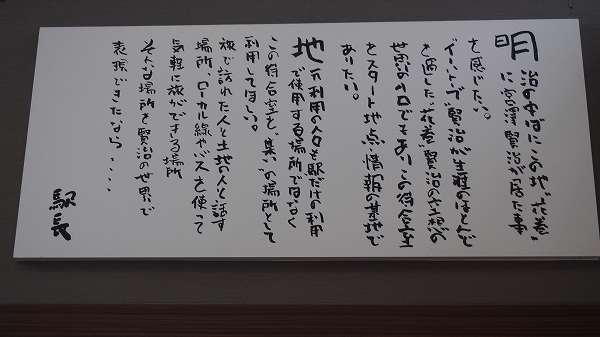 明治の この地"花巻"
に宮澤賢治が居た事
を感じたい。
"イーハトーブ"賢治が生涯のほとんど
を過した"花巻"賢治の空想の
世界の入口でもあり、この待合室
をスタート地点・情報の基地で
ありたい。
地元利用の人々も駅だけの利用
で使用する場所ではなく
この待合室を、"集い"の場所として
利用してほしい。
旅で訪れた人と土地の人と話す
場所、ローカル線やバスを使って
気軽に旅ができる場所
そんな場所を賢治の世界で
表現できたなら・・・・
駅長